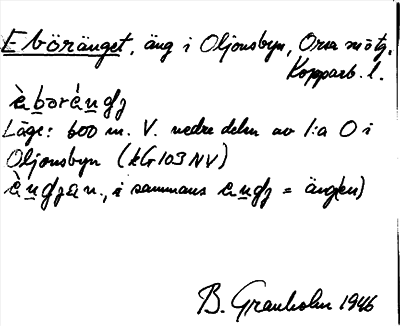 Eböränget, äng i Oljonsbyn, Orsa
Kopparb. l.
Läge: 600 m. V. nedre delen av 1:a O i
Oljonsbyn (kG 103 NV)
i sammans = äng(en)
B. Granholm 1946